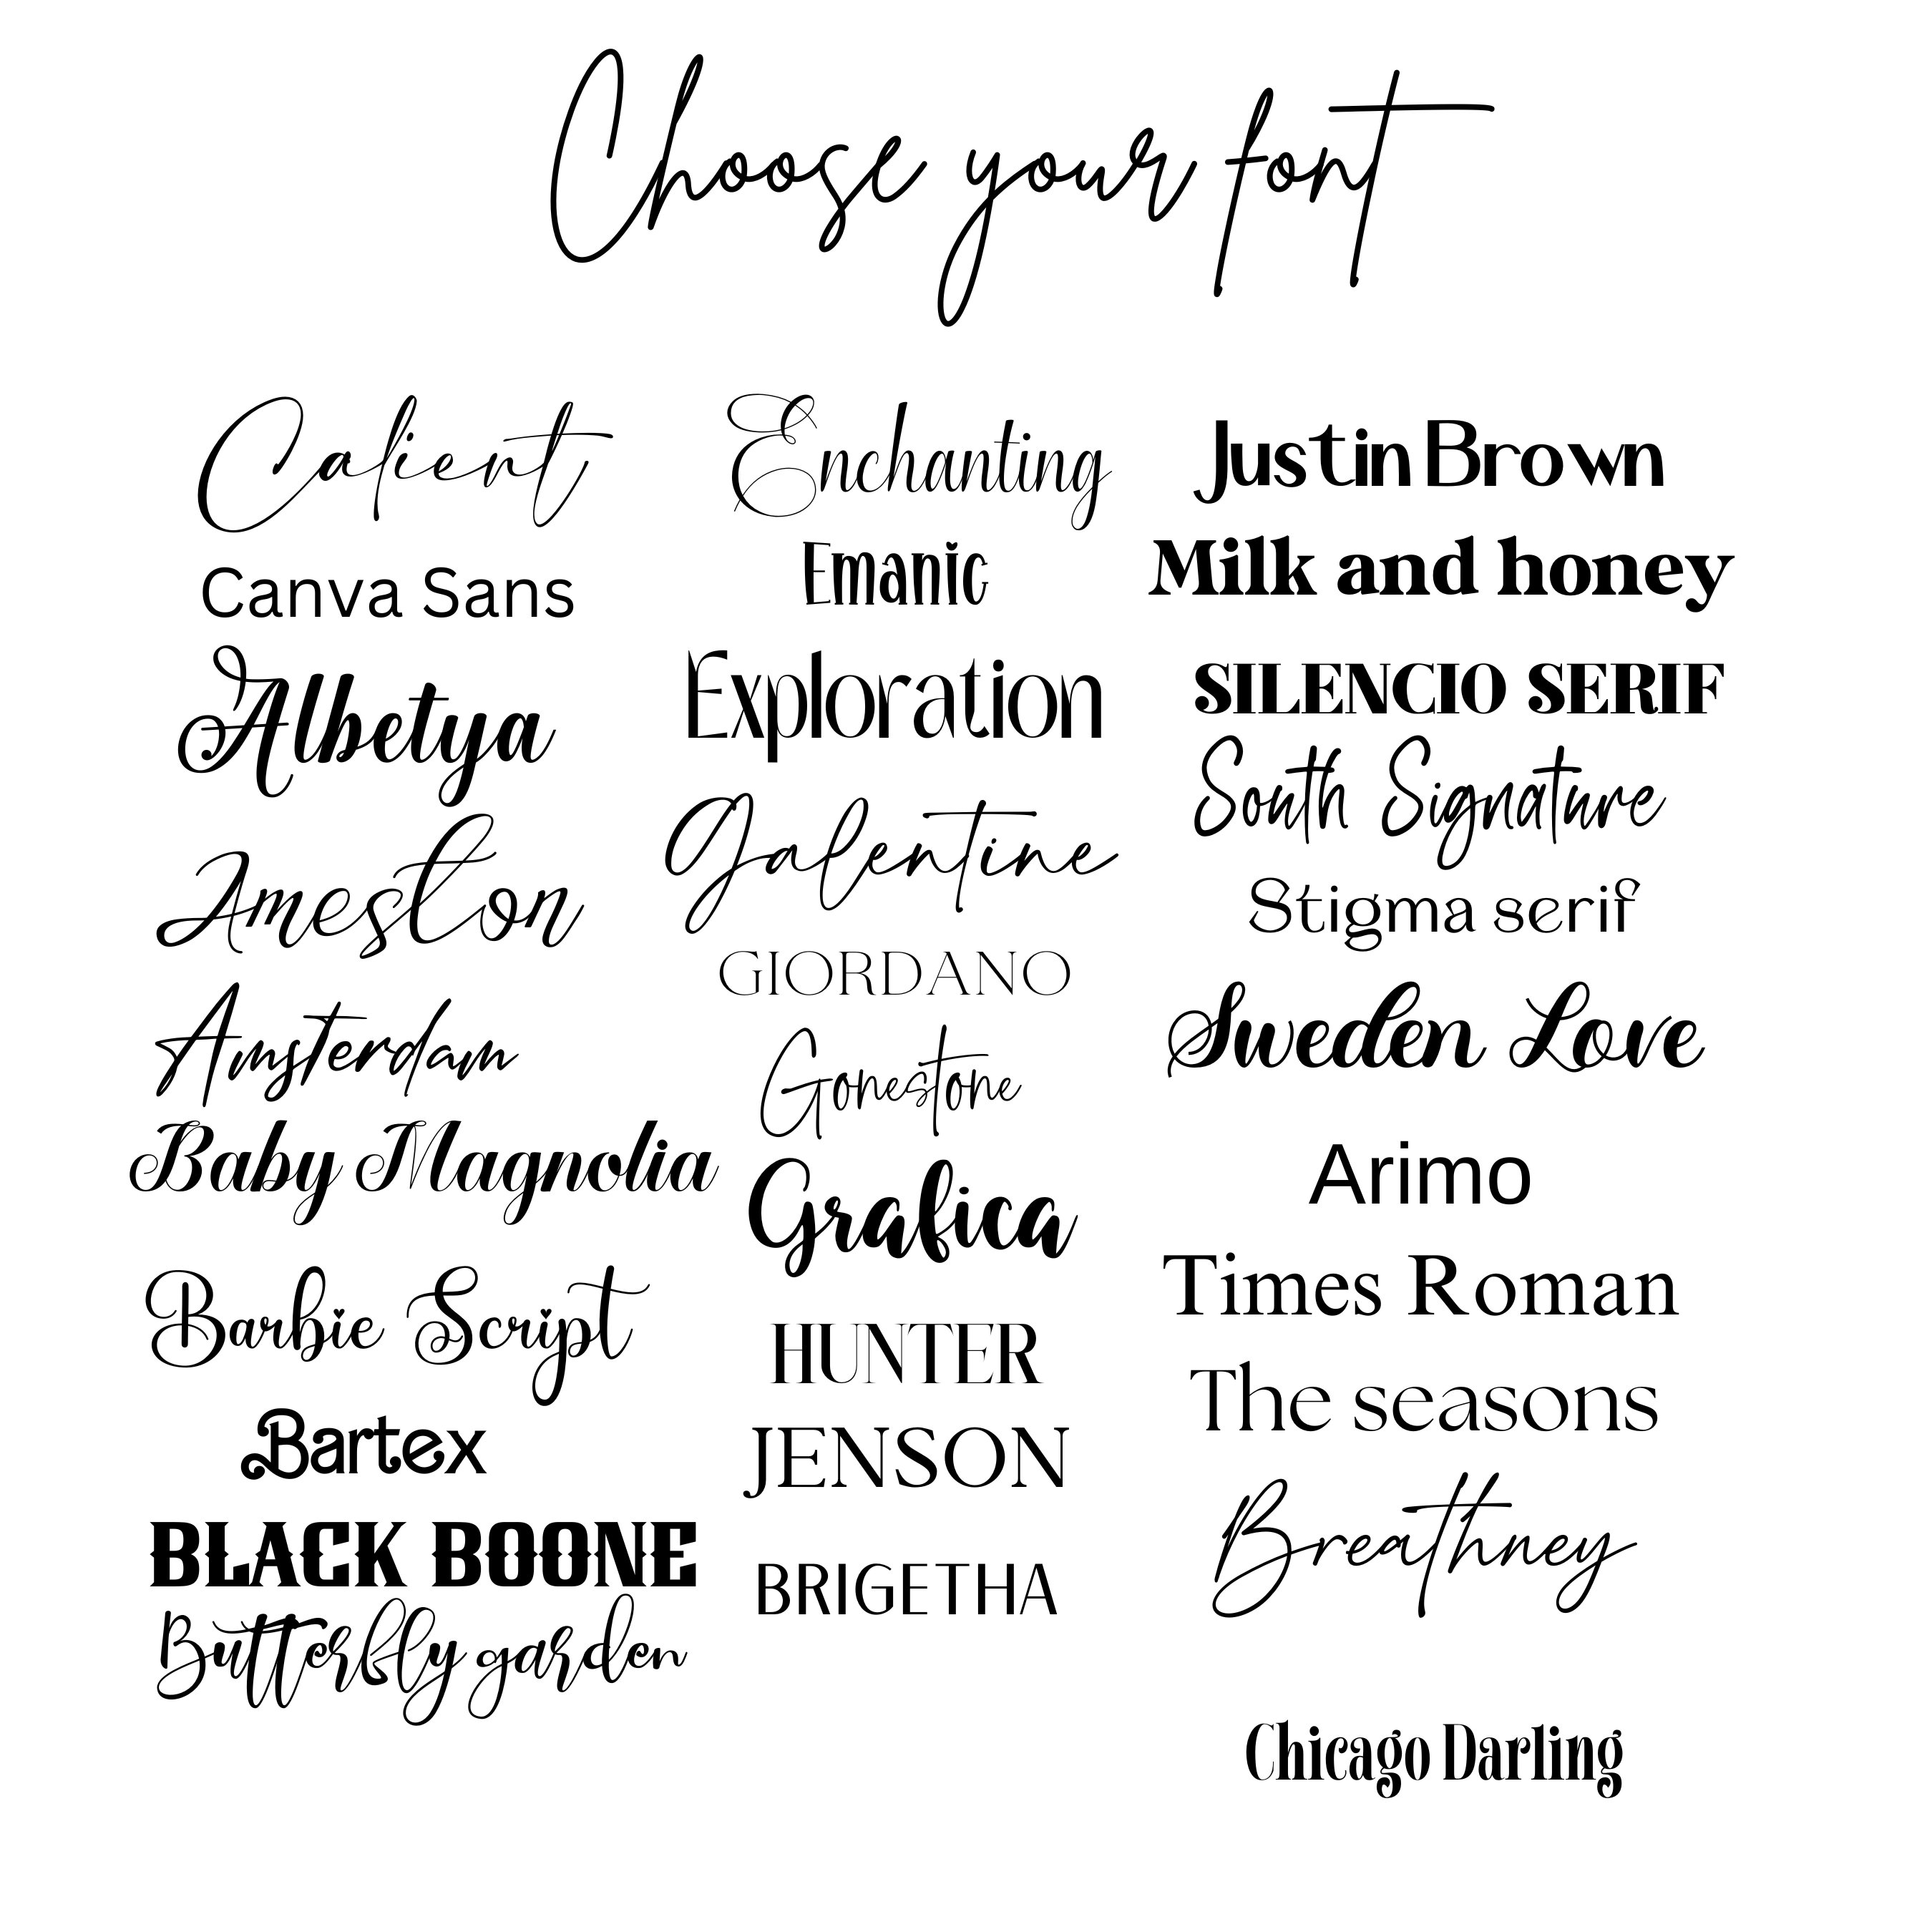 Choose your font
Calient
Canva Sans
Albetya
Ameston
Amsterdam
Baby Magnolia
Barbie Script
Bartex
BLACK BOONE
Butterfly garden
Enchanting
Emanic
Exploration
Galentine
GIORDANO
Gonestone
Grafica
HUNTER
JENSON
BRIGETHA
Justin Brown
Milk and honey
SILENCIO SERIF
South Signature
Stigma serif
Sweden Love
Arimo
Times Roman
The seasons
Breathney
Chicago Darling